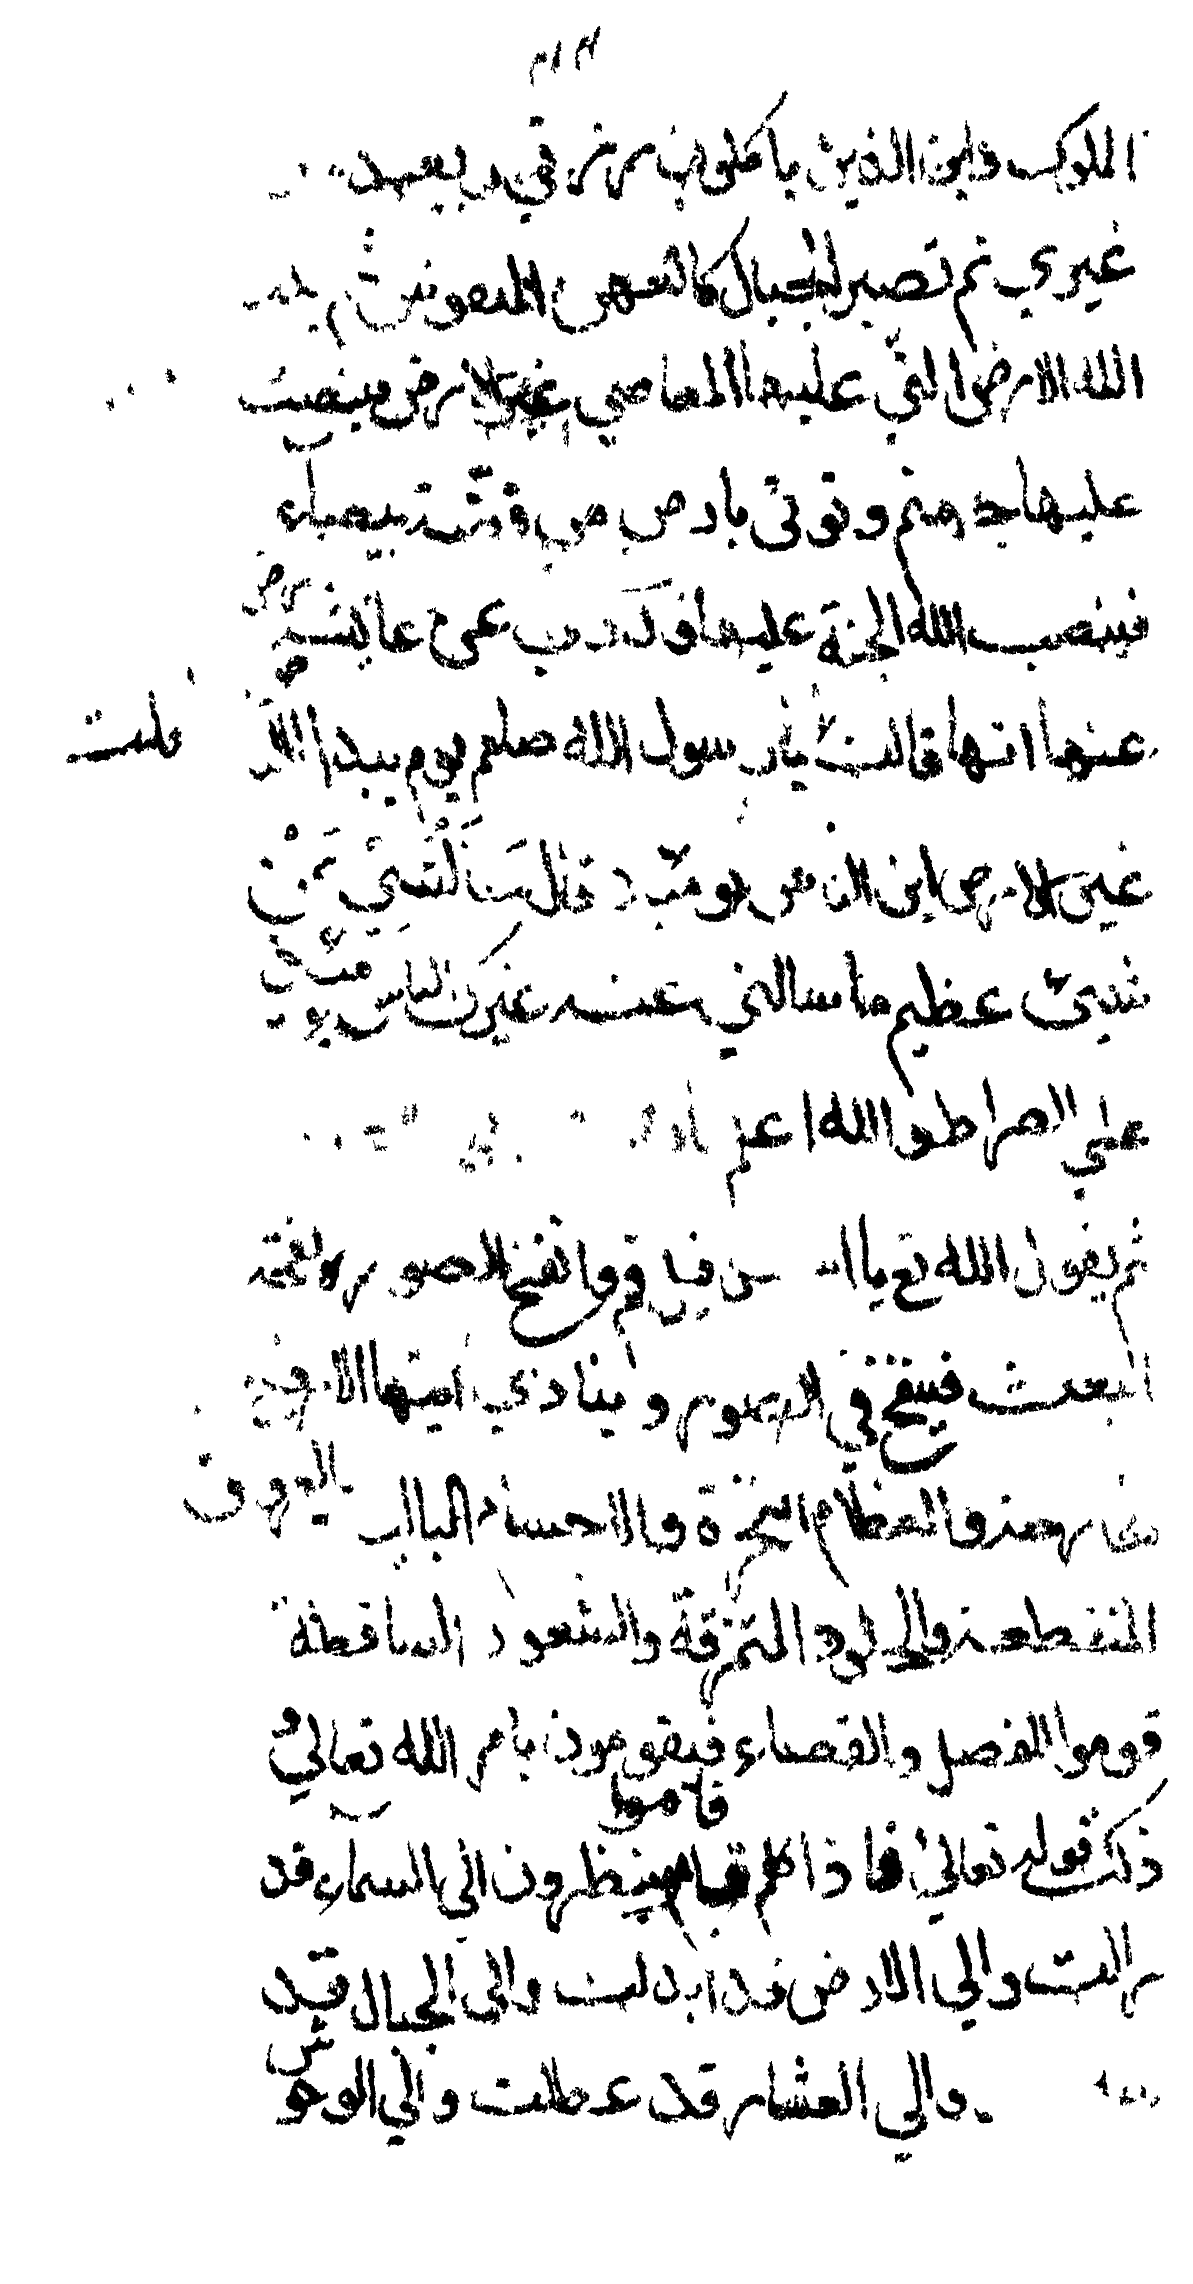 الملوك واين الذين ياكلون رزقي ويعبدون
غيري ثم تصير الجبال كالعهن المنفوش ثم يبدل
الله الارض التي عليها المعاصي غير الارض فينصب
عليها جهنم وتوتى بارض من فضة بيضاء
فينصب الله الجنة عليها وقد روي عن عايشة رض
عنها انها قالت يا رسول الله صلعم يوم يبدل الارض
غير الارض اين الناس يومئذ قال سالتني عن
شيئ عظيم ما سالني عنه غيرك الناس يومئذ
علي الصراط والله اعلم
ثم يقول الله تع يا اسرافيل قم وانفخ الصور نفخة
البعث فينفخ في الصور وينادي ايتها الارواح
الخارجة والعظام النخرة والاجساد البالية والعروق
المتقطعة والجلود المتمزقة والشعور الساقطة
قوموا للفصل والقضاء فيقومون بامر الله تعالي و
ذلك قوله تعالي فاذا هم قيام ينظرون قاموا الي السماء قد
زالت والي الارض قد ابدلت والى الجبال قد
والي العشار قد عطلت والي الوحوش